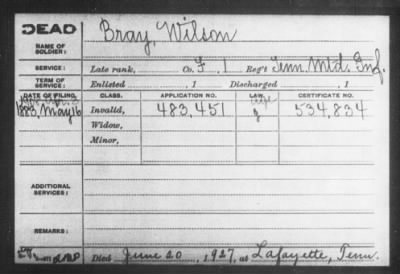 DEAD
NAME OF SOLDIER: Bray, Wilson
SERVICE: Late rank, Co. F, 1 Reg't Tenn. Mtd. Inf.
TERM OF SERVICE: Enlisted , 1 Discharged , 1
DATE OF FILING. CLASS. APPLICATION NO. LAW. CERTIFICATE NO.
1883, May 16 Invalid, 483,451 g 534,834
Widow,
Minor,
ADDITIONAL SERVICES:
REMARKS:
Died June 20, 1927, at Lafayette, Tenn.